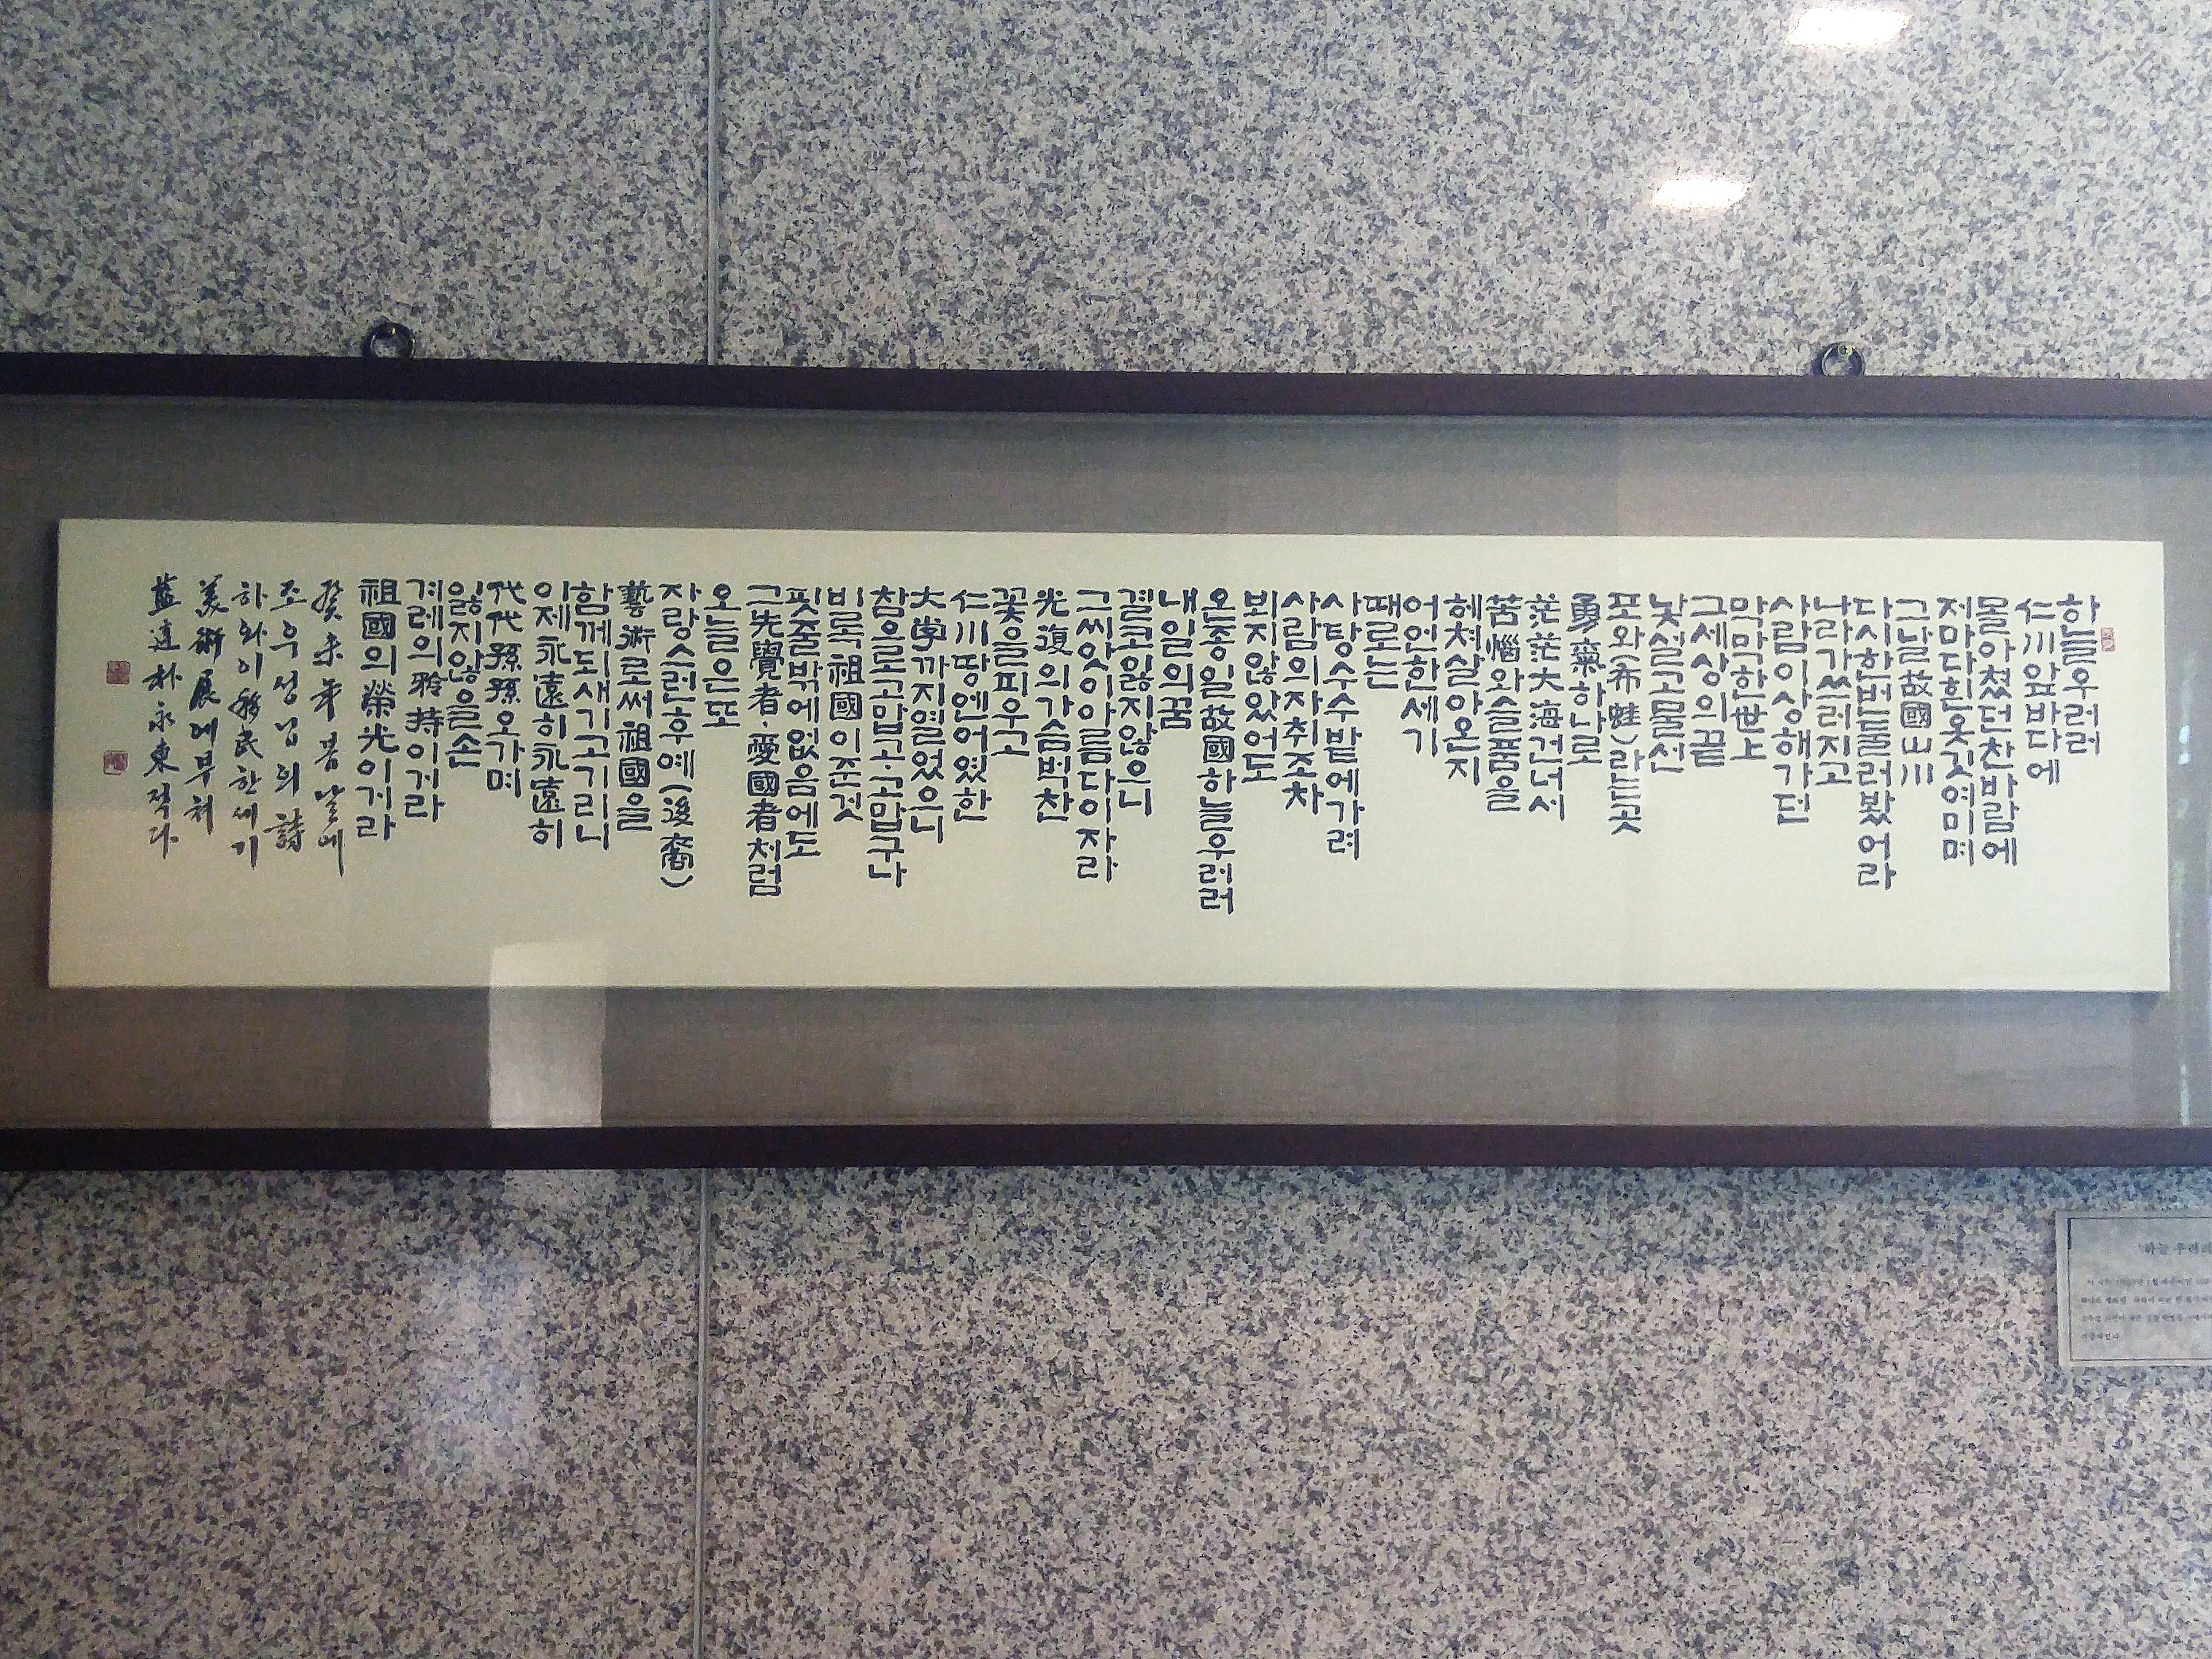 하늘우러러
仁川앞바다에
몰아쳤던찬바람에
저마다흰옷깃여미며
그날故國山川
다시한번둘러봤어라
나라가쓰러지고
사람이상해가던
막막한世上
그세상의끝
낯설고물선
포와(布蛙)라는곳
勇氣하나로
茫茫大海건너서
苦惱와슬픔을
헤쳐살아온지
어언한세기
때로는
사탕수수밭에가려
사람의자취조차
보지않았어도
온종일故國하늘우러러
내일의꿈
결코잃지않으니
그씨앗이아름다이자라
光復의가슴벅찬
꽃을피우고
仁川땅엔어엿한
大學까지열었으니
참으로고맙고·고맙구나
비록祖國이준것
핏줄밖에없음에도
그先覺者·愛國者처럼
오늘은또
자랑스런후예(後裔)
藝術로써祖國을
함께도새기고기리니
이제永遠히永遠히
代代孫孫오가며
잃지않을손
겨레의矜持이거라
祖國의榮光이거라
癸未年봄날에
조우성님의詩
하와이移民한세기
美術展에부쳐
藍達朴永東적다
하늘 우러러